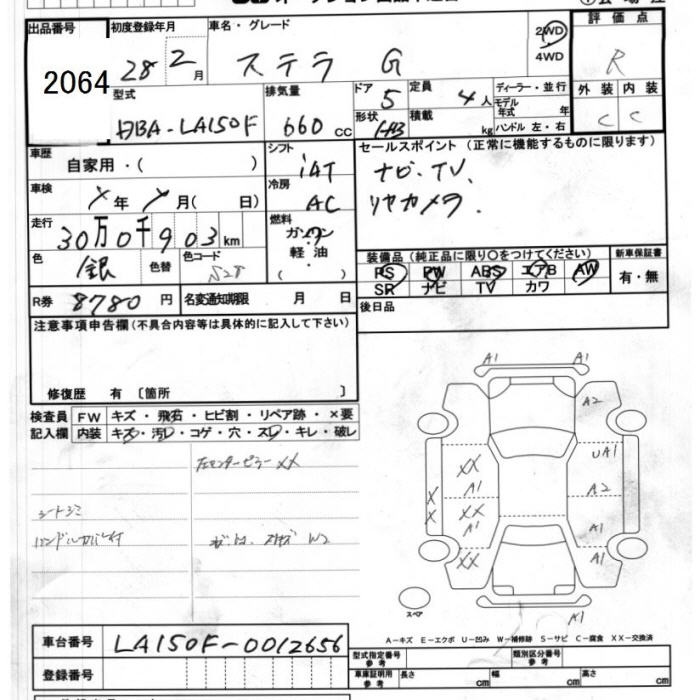 出品番号 初度登録年月 車名・グレード 評価点
2064 28 2月 ステラ G 2WD 4WD R
型式 排気量 ドア 定員 ディーラー・並行 外装 内装
DBA-LA150F 660cc 5 4人 モデル年式 年 C C
形状 HB 積載 kg ハンドル 左・右
車歴 自家用・( ) シフト iAT セールスポイント (正常に機能するものに限ります)
車検 年 月( 日) 冷房 AC ナビ.TV.
リヤカメラ.
走行 30万0千903km 燃料 ガソリン 軽油 ( )
色 銀 色替 色コード S28
装備品 (純正品に限り○をつけてください) 新車保証書
PS PW ABS エアB AW 有・無
SR ナビ TV カワ
R券 8780円 名変通知期限 月 日
後日品
注意事項申告欄 (不具合内容等は具体的に記入して下さい)
修復歴 有 〔箇所 〕
検査員 FW キズ・飛石・ヒビ割・リペア跡・×要
記入欄 内装 キズ・汚レ・コゲ・穴・スレ・キレ・破レ
左センターピラー XX
シートシミ
ハンドルカバー付 W2
A1 A1
A2
UA1
XX
A1 A2
X
X XX
A1 A1
XX A1
スペア A1
A-キズ E-エクボ U-凹み W-補修跡 S-サビ C-腐食 XX-交換済
車台番号 LA150F-0012656
型式指定番号 参考 類別区分番号 参考
登録番号
車庫証明用 参考 長さ cm 幅 cm 高さ cm